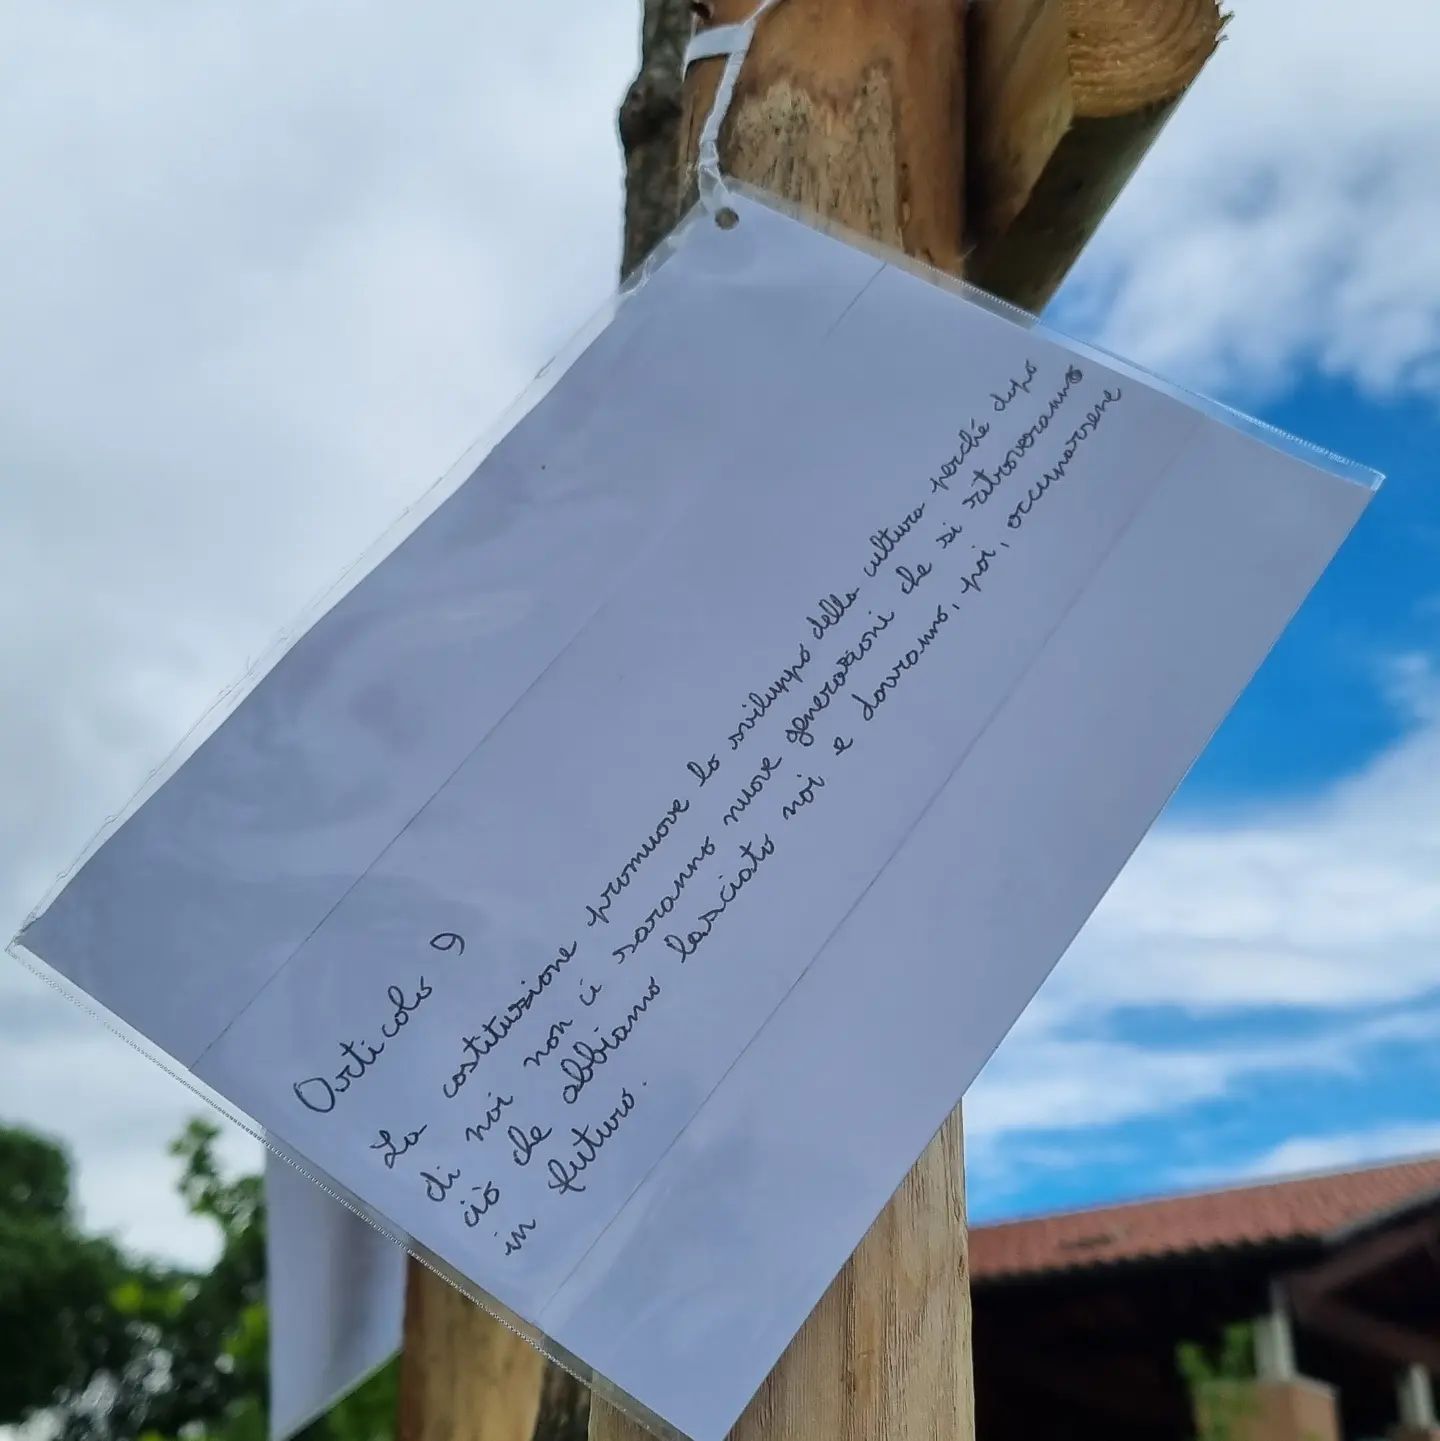 Articolo 9
La costituzione promuove lo sviluppo della cultura perché dopo
di noi non ci saranno nuove generazioni che si ritroveranno
ciò che abbiamo lasciato noi e dovranno, poi, occuparsene
in futuro.